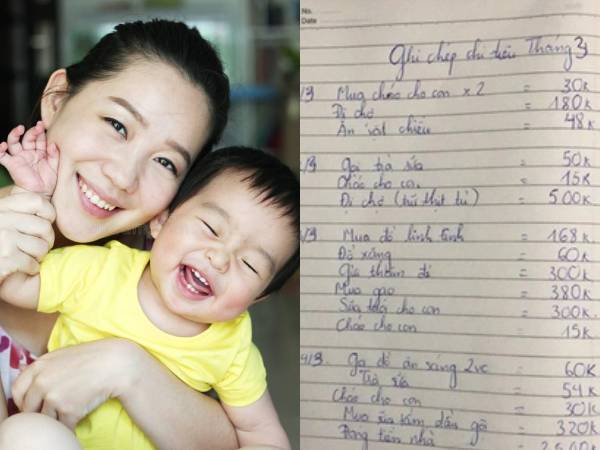 No.
Date
Ghi chép chi tiêu Tháng 3
/3 Mua cháo cho con x 2 = 30K
Đi chợ = 180K
Ăn vặt chiều = 48K
/3 gọi trà sữa = 50K
Cháo cho con = 15K
Đi chợ (trữ thịt tủ) = 500K
/3 Mua đồ linh tinh = 168K
Đổ xăng = 60K
thăm đẻ = 300K
Mua gạo = 380K
Sữa cho con = 300K
Cháo cho con = 15K
4/3. Gọi đồ ăn sáng 2vc = 60K
Trà sữa = 54K
Cháo cho con = 30K
Mua sữa tắm, dầu gội = 320K
Đóng tiền nhà